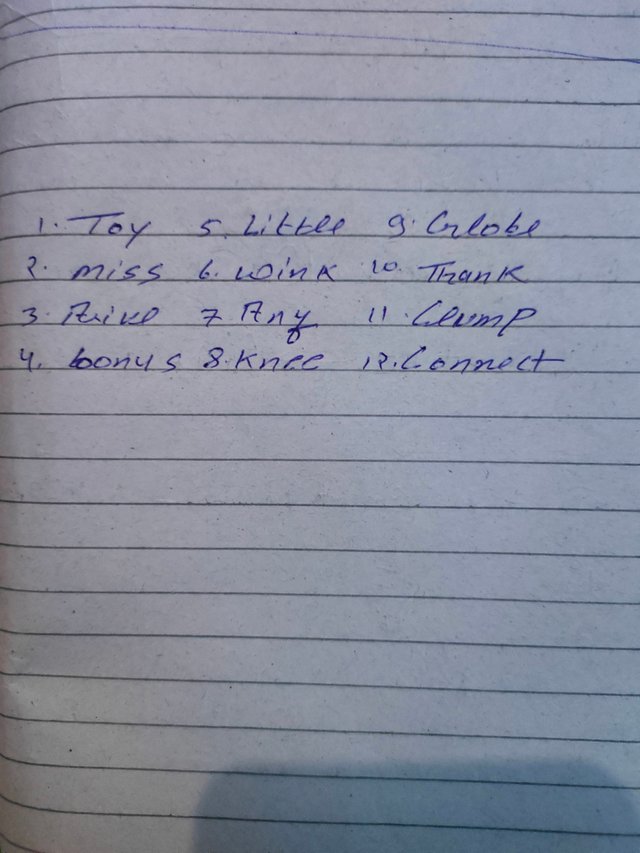 1. Toy 5. Little 9. Globe
2. miss 6. wink 10. Thank
3. 7. Any 11. Clump
4. bonus 8. Knee 12. Connect